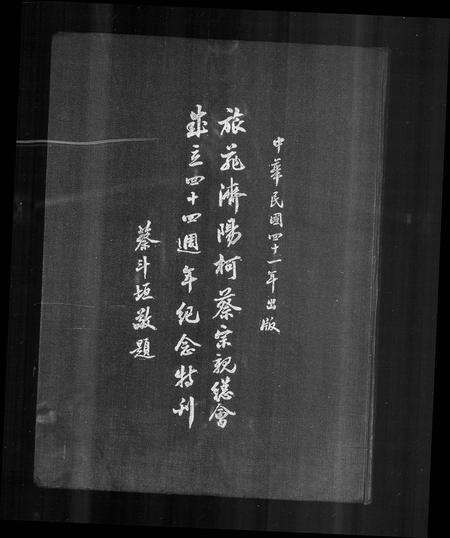 中華民國四十一年出版
旅菲濟陽柯蔡宗親總會
成立四十四週年紀念特刊
蔡斗垣敬題